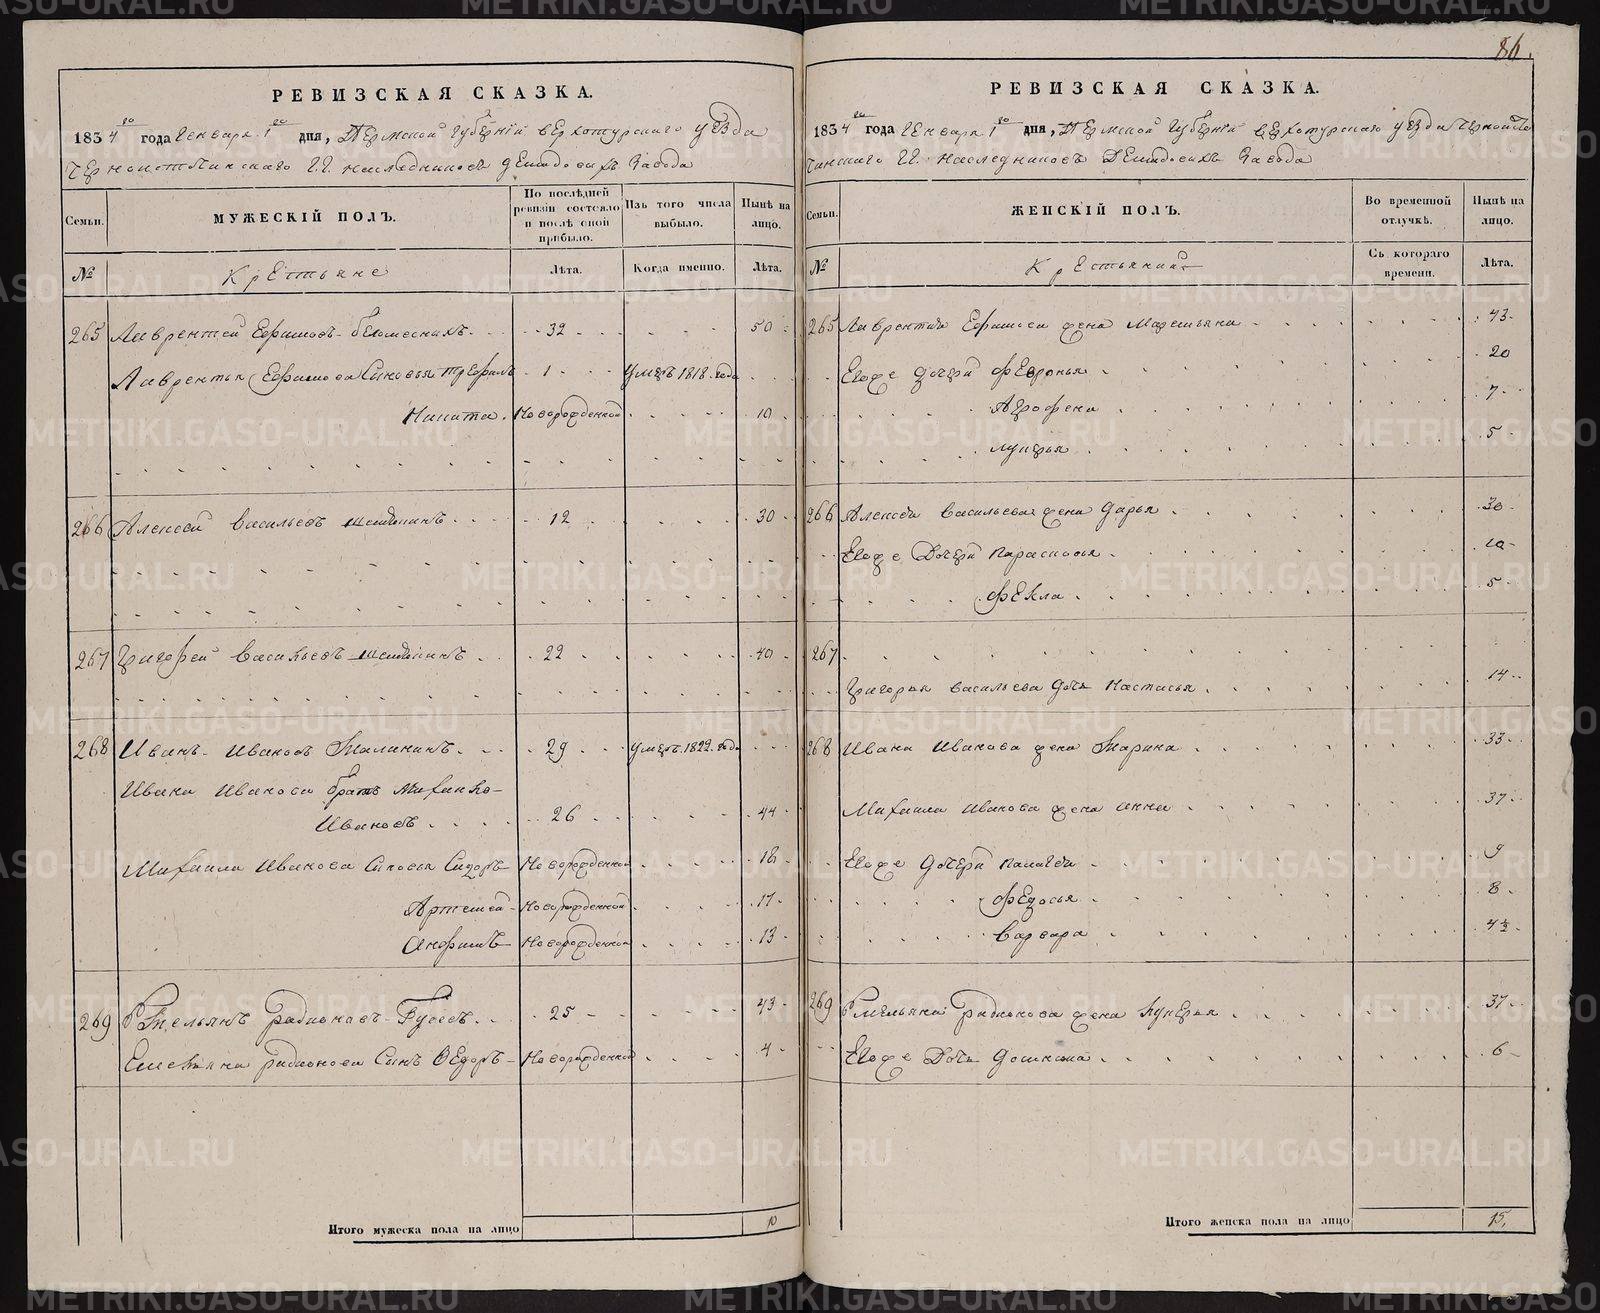 86.
РЕВИЗСКАЯ СКАЗКА.
1834го года Генваря 1го дня, Пермской Губернiи Верхотурскаго уезда
Черноисточинскаго Г.Г. наследниковъ Демидовыхъ Завода
Семьи.
МУЖЕСКIЙ ПОЛЪ.
По послѣдней ревизiи состояло и послѣ оной прибыло.
Изъ того числа выбыло.
Нынѣ на лицо.
№
Крестьяне
Лѣта.
Когда именно.
Лѣта.
265 Лаврентей Ефимовъ Беломесныхъ 32 50
Лаврентья Ефимова Сыновья Трефилъ 1 Умеръ 1818 года
Никита Новорожденной 10
266 Алексей Васильевъ 12 30
267 Григорей Васильевъ 22 40
268 Иванъ Ивановъ Калининъ 29 умеръ 1822 года
Ивана Иванова братъ Михайло
Ивановъ 26 44
Михаила Иванова Сыновья Сидоръ Новорожденной 18
Артемей Новорожденной 17
Анфимъ Новорожденной 13
269 Емельянъ Радионовъ Гусевъ 25 43
Емельяна Радионова Сынъ Ѳедоръ Новорожденной 4
Итого мужеска пола на лицо 10
РЕВИЗСКАЯ СКАЗКА.
1834го года Генваря 1го дня, Пермской Губернiи Верхотурскаго уезда Черноисто
чинскаго Г.Г. наследниковъ Демидовыхъ Завода
Семьи.
ЖЕНСКIЙ ПОЛЪ.
Во временной отлучкѣ.
Нынѣ на лицо.
№
Крестьянки
Съ котораго времени.
Лѣта.
265 Лаврентия Ефимова жена Маремьяна 43
Егоже дочери Февронья 20
Агрофена 7
Лукерья 5
266 Алексея Васильева жена Дарья 30
Егоже Дочери Парасковья 10
Фекла 5
267
Григорья Васильева дочь Настасья 14
268 Ивана Иванова жена Марина 33
Михаила Иванова жена Анна 37
Егоже Дочери Палагея 9
Федосья 8
Варвара 4½
269 Емельяна Радионова жена Лукерья 37
Егоже Дочь Домника 6
Итого женска пола на лицо 15.
METRIKI.GASO-URAL.RU